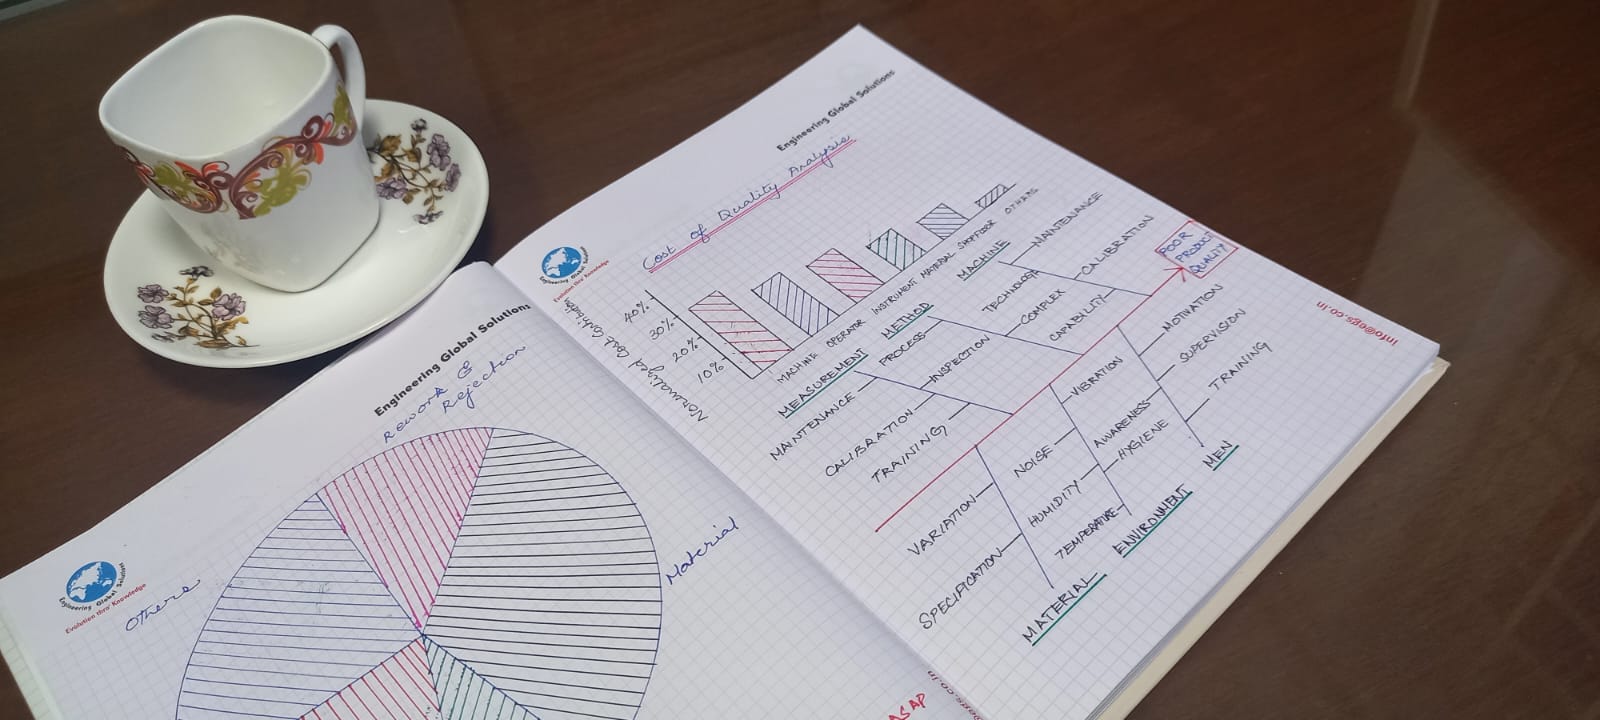 Engineering Global Solutions
Engineering Global Solutions
Evolution thro' Knowledge
Rework &
Rejection
Others
Material
ASAP
Engineering Global Solutions
Engineering Global Solutions
Evolution thro' Knowledge
Cost of Quality Analysis
Normalized Cost Contribution
40%
30%
20%
10%
MACHINE
OPERATOR
INSTRUMENT
MATERIAL
SHOPFLOOR
OTHERS
MEASUREMENT
MAINTENANCE
CALIBRATION
TRAINING
METHOD
PROCESS
INSPECTION
MACHINE
TECHNOLOGY
COMPLEX
CAPABILITY
MAINTENANCE
CALIBRATION
POOR
PRODUCT
QUALITY
VARIATION
SPECIFICATION
MATERIAL
VIBRATION
NOISE
AWARENESS
HUMIDITY
HYGIENE
TEMPERATURE
ENVIRONMENT
MOTIVATION
SUPERVISION
TRAINING
MEN
info@egs.co.in